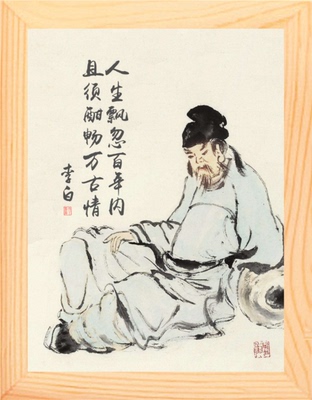 人生飘忽百年内
且须酣畅万古情
李白